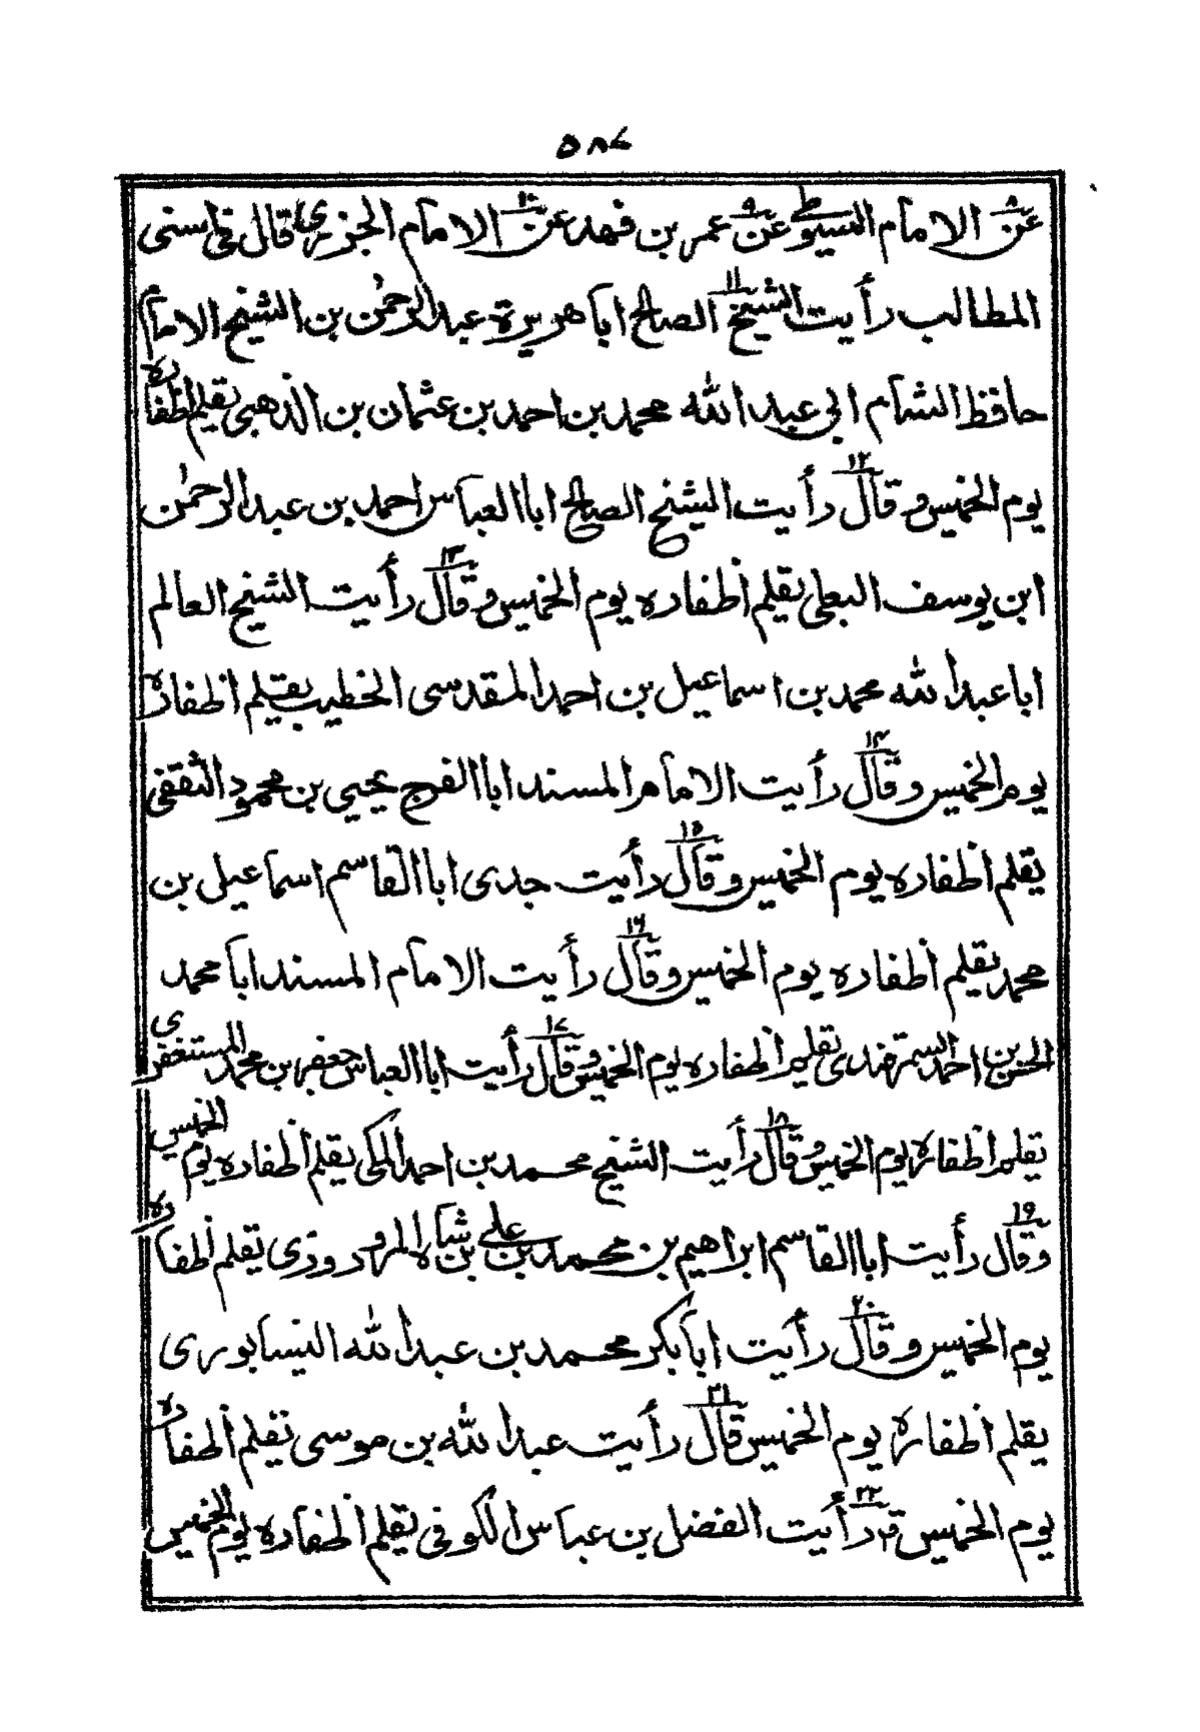 ٥٨٤
عن٨ الامام السيوطي عن٩ عمر بن فهد عن١٠ الامام الجزري قال في اسنى
المطالب رأيت الشيخ١١ الصالح ابا هريرة عبد الرحمٰن بن الشيخ الامام
حافظ الشام ابي عبد الله محمد بن احمد بن عثمان بن الذهبي يقلم اظفاره
يوم الخميس وقال١٢ رأيت الشيخ الصالح ابا العباس احمد بن عبد الرحمٰن
ابن يوسف البعلي يقلم أظفاره يوم الخميس وقال١٣ رأيت الشيخ العالم
ابا عبد الله محمد بن اسماعيل بن احمد المقدسى الخطيب يقلم اظفاره
يوم الخميس وقال١٤ رأيت الامام المسند ابا الفرج يحيى بن محمود الثقفي
يقلم اظفاره يوم الخميس وقال١٥ رأيت جدى ابا القاسم اسماعيل بن
محمد يقلم أظفاره يوم الخميس وقال١٦ رأيت الامام المسند ابا محمد
الحسن بن احمد السمرقندى يقلم اظفاره يوم الخميس وقال١٧ رأيت ابا العباس جعفر بن محمد المستغفرى
يقلم اظفاره يوم الخميس وقال١٨ رأيت الشيخ محمد بن احمد المكى يقلم أظفاره يوم الخميس
وقال١٩ رأيت ابا القاسم ابراهيم بن محمد بن علي بن شاه المروروذى يقلم أظفاره
يوم الخميس وقال٢٠ رأيت ابا بكر محمد بن عبد الله النيسابورى
يقلم أظفاره يوم الخميس قال٢١ رأيت عبد الله بن موسى يقلم أظفاره
يوم الخميس ق٢٢ رأيت الفضل بن عباس الكوفى يقلم اظفاره يوم الخميس